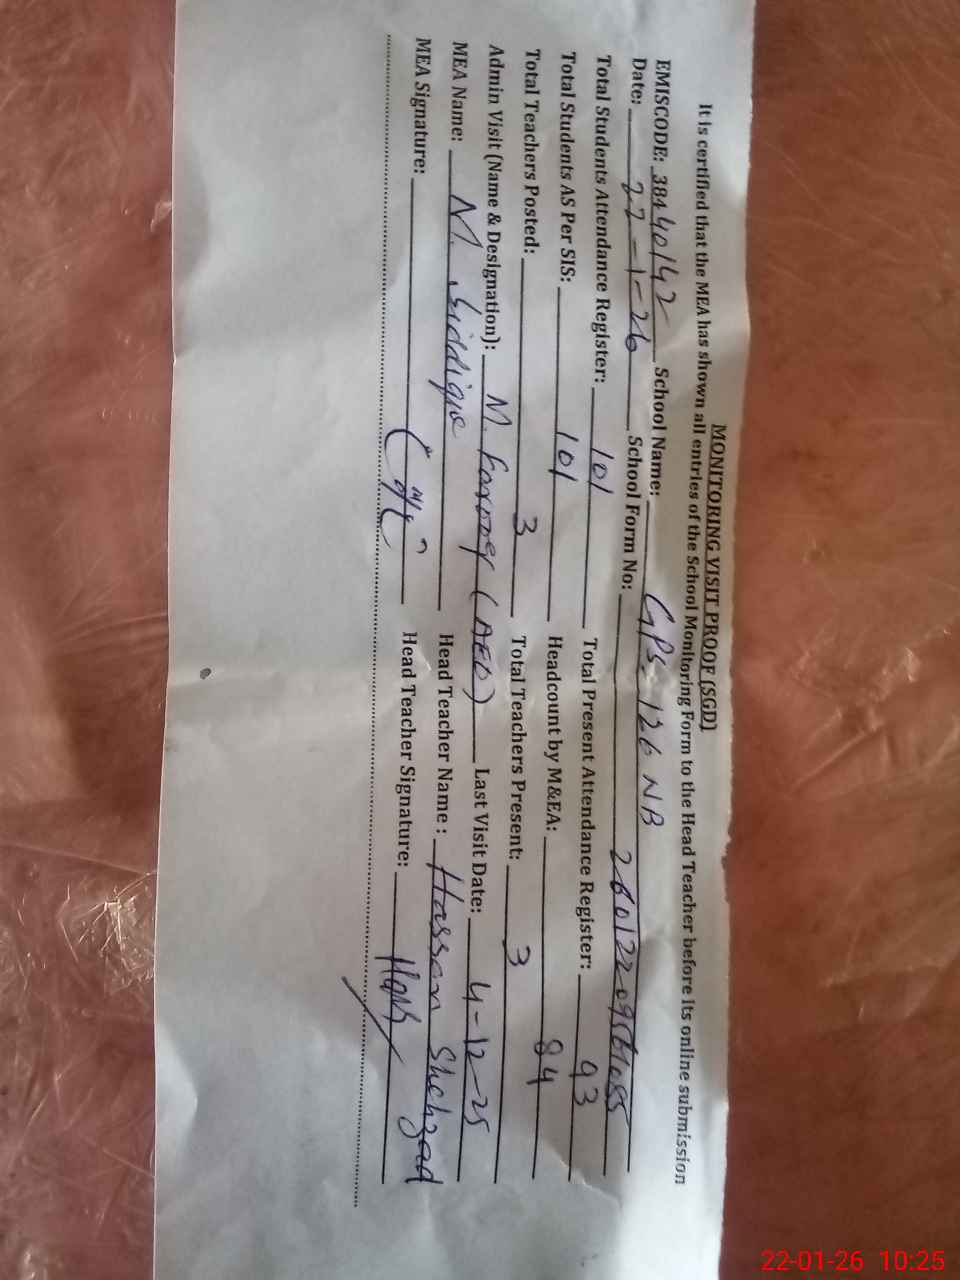 MONITORING VISIT PROOF (SGD)
It is certified that the MEA has shown all entries of the School Monitoring Form to the Head Teacher before its online submission
EMISCODE: 38440142 School Name: GPS 126 NB
Date: 22-1-26 School Form No:
Total Students Attendance Register: 101 Total Present Attendance Register: 93
Total Students AS Per SIS: 101 Headcount by M&EA: 84
Total Teachers Posted: 3 Total Teachers Present: 3
Admin Visit (Name & Designation): M. Farooq (AEO) Last Visit Date: 4-12-25
MEA Name: M. Siddique Head Teacher Name : Hassan Shehzad
MEA Signature: Head Teacher Signature:
22-01-26 10:25